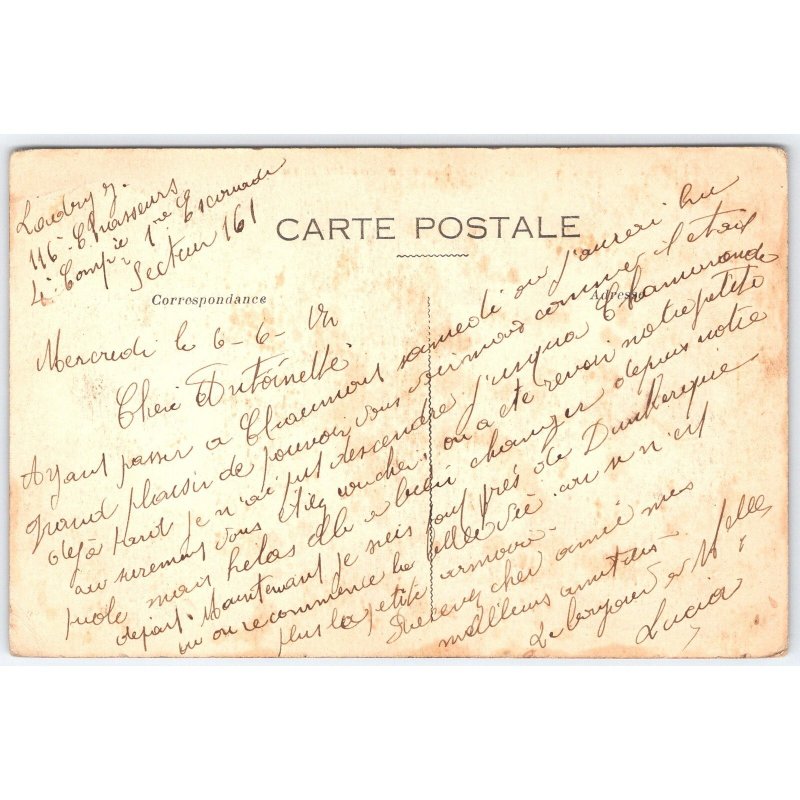 Landry J.
116e Chasseurs
4e Compie 1ere Escouade
Secteur 161
CARTE POSTALE
Correspondance
Adresse
Mercredi le 6-6-
Cher Antoinette
Ayant passer a Chaumont samedi ou j'aurai eu
grand plaisir de pouvoir vous voir mais comme il était
déjà tard je n'ai put descendre jusqua Chamarande
au surement vous étiez coucher on a été revoir notre petite
piole mais hélas elle a bien changer depuis notre
départ. Maintenant je suis tout près de Dunkerque
ou on recommence la vie car se n'est
plus la petite armoire.
Recevez cher amie mes
meilleurs amitiés
Le bonjour a Melle
Lucia